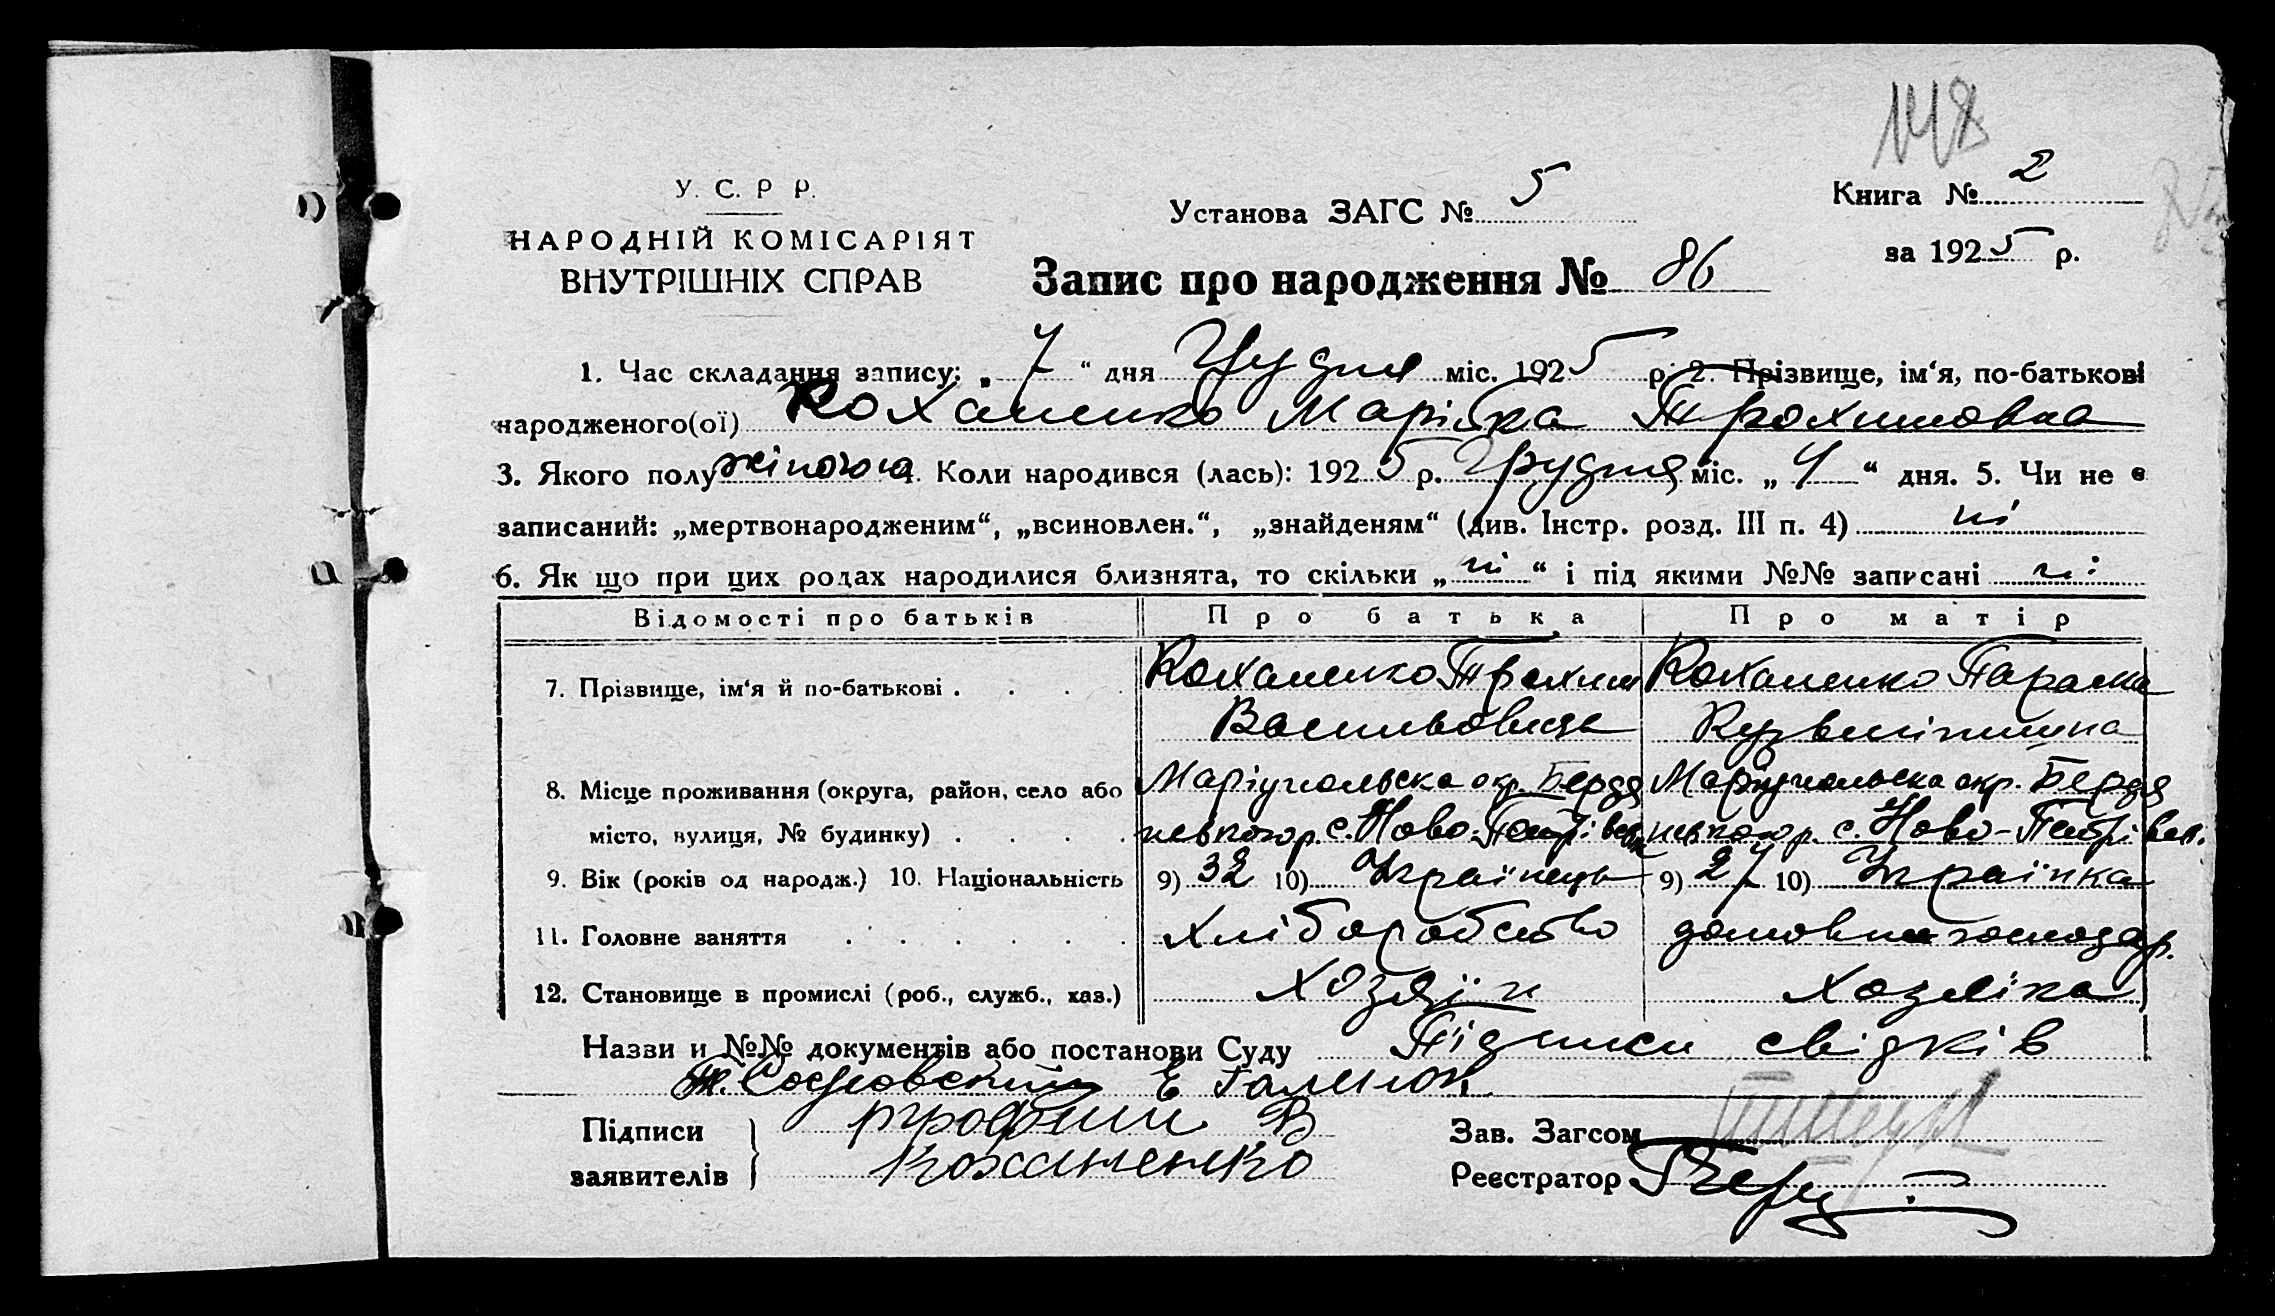 148
У. С. Р Р.
НАРОДНІЙ КОМІСАРІЯТ
ВНУТРІШНІХ СПРАВ
Установа ЗАГС № 5
Книга № 2
за 1925 р.
Запис про народження № 86
1. Час складання запису: „ 7 “ дня Грудня міс. 1925 р. 2. Прізвище, ім‘я, по-батькові
народженого(ої) Коханенко Марійка Трохимовна
3. Якого полу жіночого 4. Коли народився (лась): 1925 р. Грудня міс. „ 4 “ дня. 5. Чи не є
записаний: „мертвонародженим“, „всиновлен.“, „знайденям“ (див. Інстр. розд. III п. 4) ні
6. Як що при цих родах народилися близнята, то скільки „ ні “ і під якими №№ записані ні
Відомості про батьків Про батька Про матір
7. Прізвище, ім‘я й по-батькові . . . . Коханенко Трохим Коханенко Параска
Васильовиць
8. Місце проживання (округа, район, село або Маріупольска окр. Бердя Маріупольска окр. Бердя
місто, вулиця, № будинку) . . . . с. Ново-Петрівка с. Ново-Петрівка
9. Вік (років од народж.) 10. Національність 9) 32 10) Українець 9) 27 10) Українка
11. Головне заняття . . . . . . Хліборобство домовне господар.
12. Становище в промислі (роб., служб., хаз.) Хозяїн Хозяїка
Назви и №№ документів або постанови Суду Підписи свідків
Підписи трофим В
заявителів Коханенко
Зав. Загсом
Реєстратор